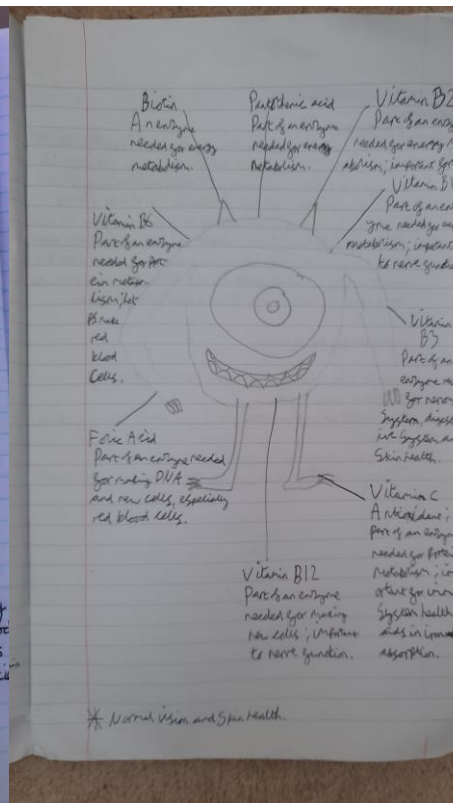 Biotin
An enzyme
needed for energy
metabolism.
Pantothenic acid
Part of an enzyme
needed for energy
metabolism.
Vitamin B2
Part of an enzy
needed for energy m
abolism; important for
Vitamin B1
Part of an en
yme needed for en
metabolism; important
to nerve function
Vitamin B6
Part of an enzyme
needed for prot
ein metabo
lism; hel
ps make
red
blood
cells.
Vitamin
B3
Part of an
enzyme ne
for nervou
System, digest
ive System an
Skin health.
Folic Acid
Part of an enzyme needed
for making DNA
and new cells, especially
red blood cells.
Vitamin C
Antioxidant;
part of an enzym
needed for protein
metabolism; im
ortant for imm
System health
aids in iron
absorption.
Vitamin B12
Part of an enzyme
needed for making
new cells; important
to nerve function.
* Normal vision and Skin health.